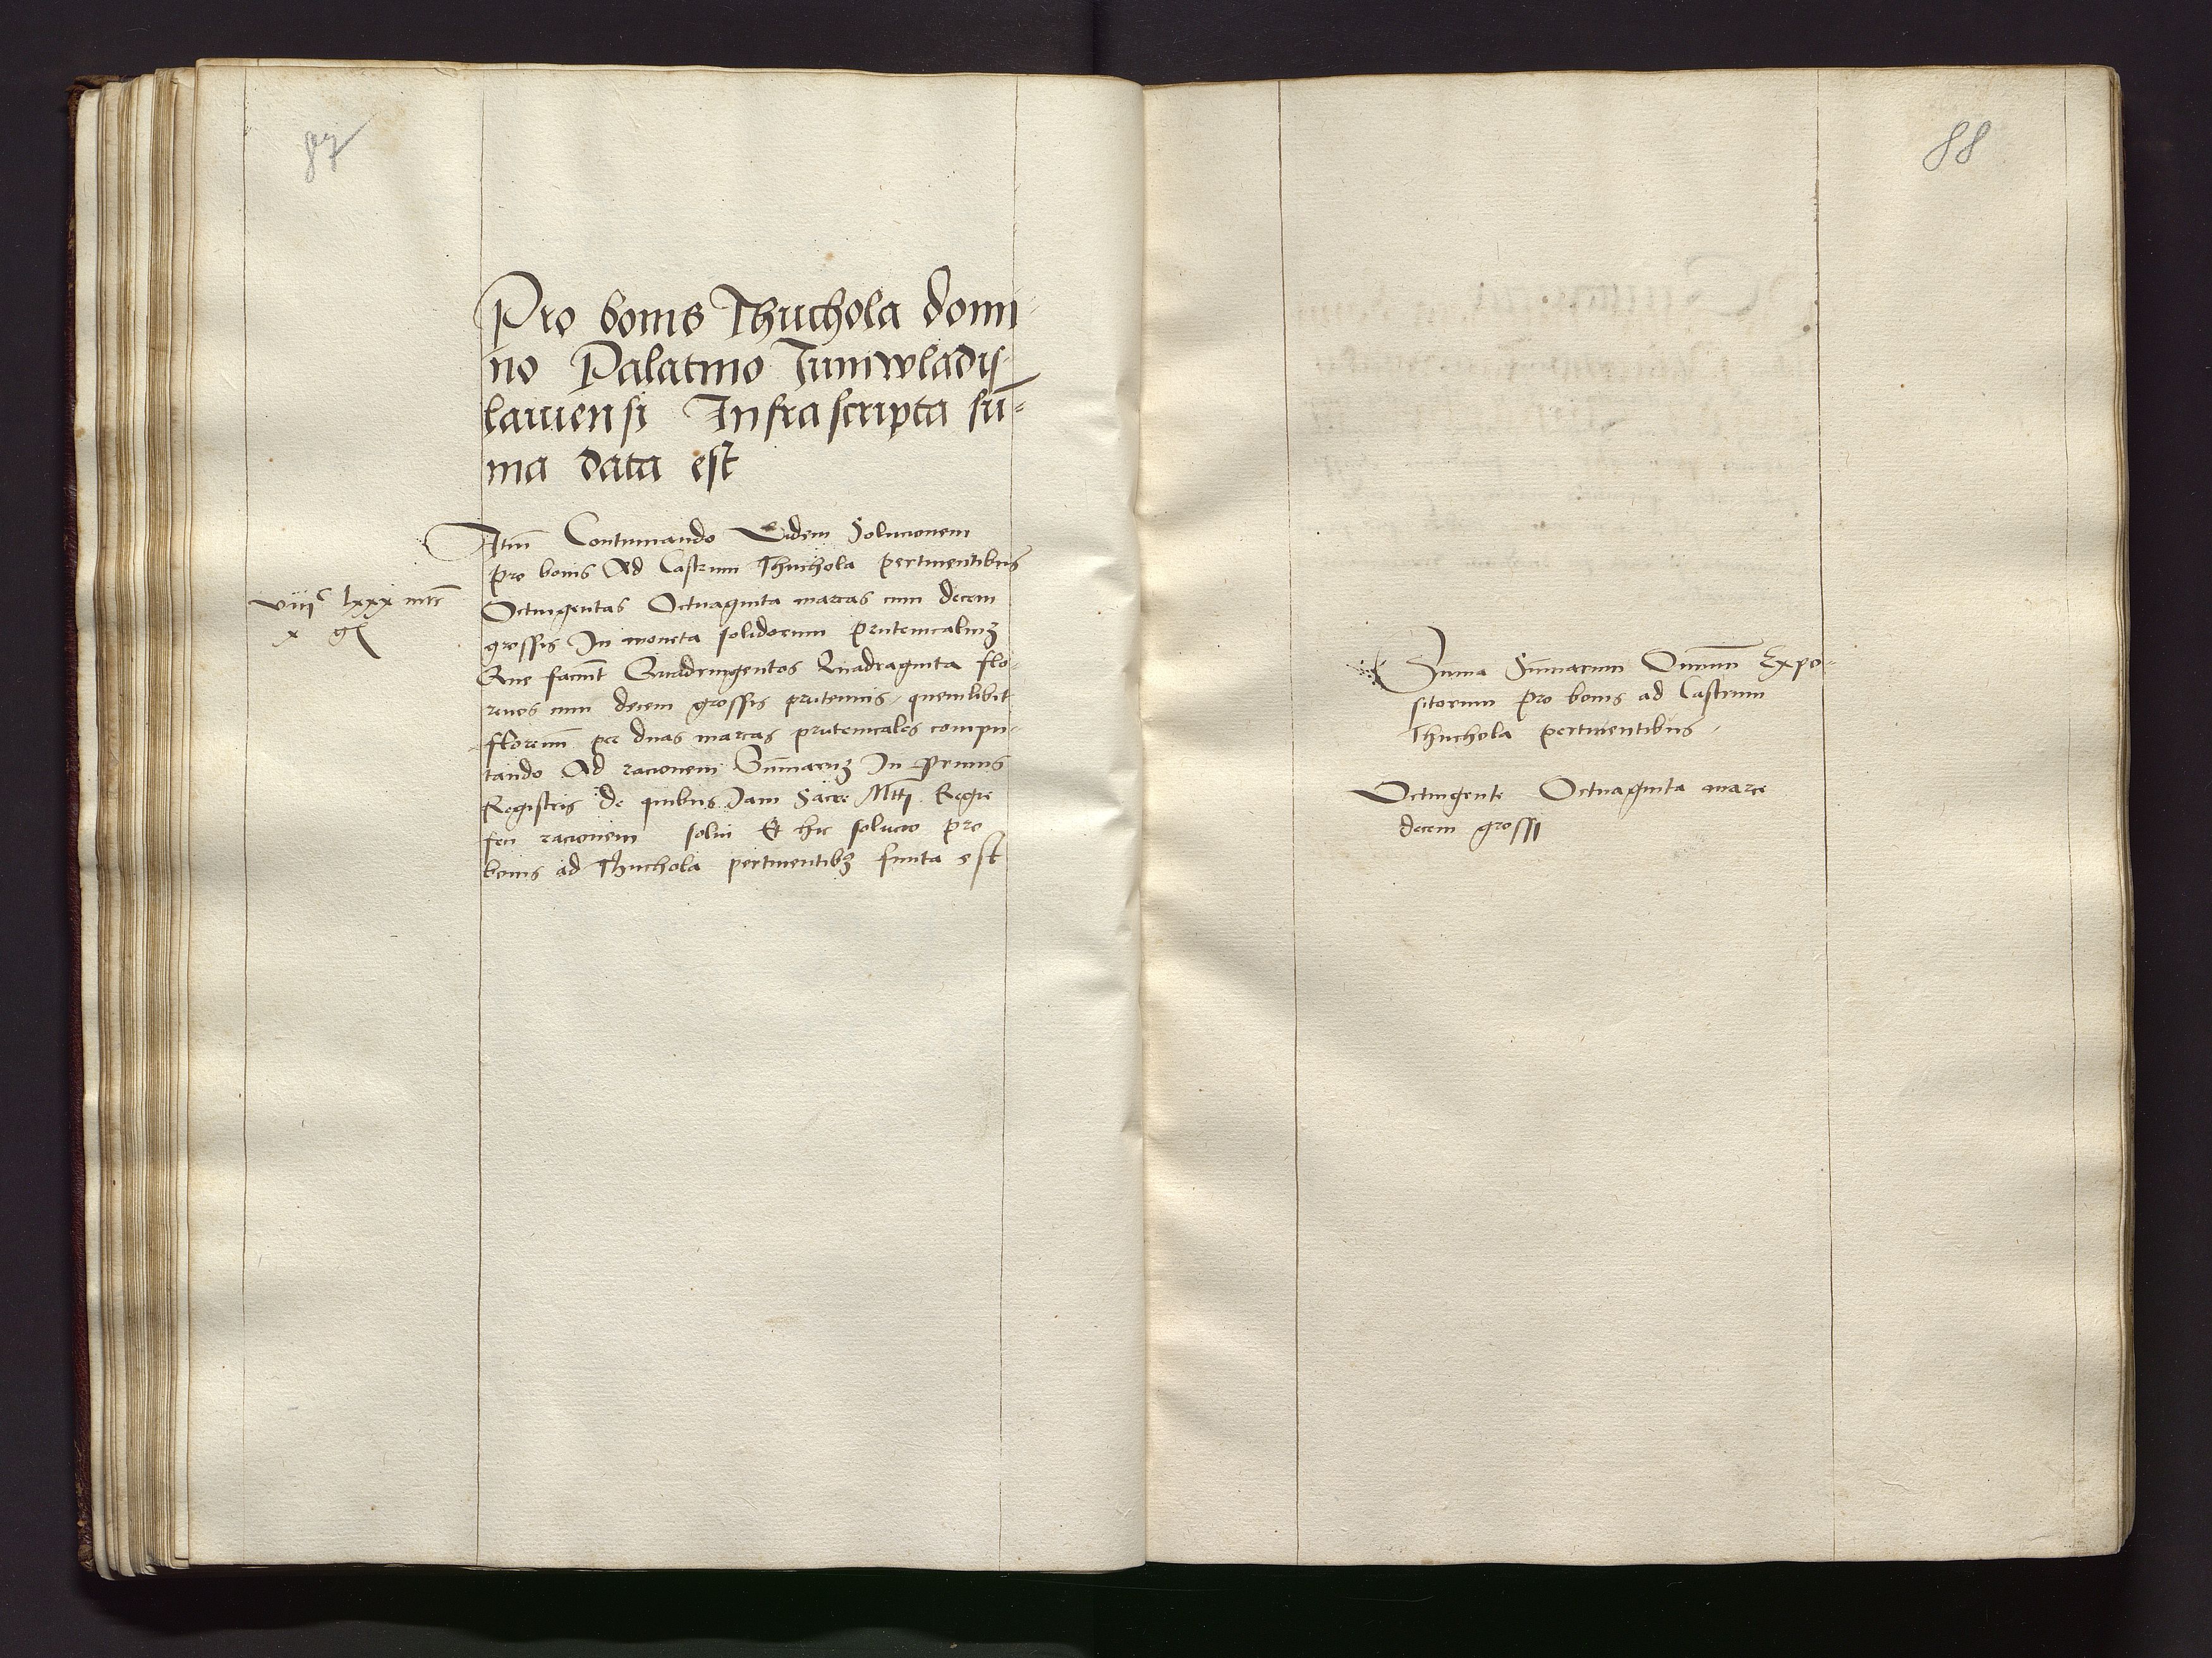 87
Pro bonis Thuchola domi
no Palatino Juniwladis-
lauiensi Infrascripta sū=
ma data est
Itm̄ Continuando Eidem Solucionem
pro bonis Ad Castrum Thuchola pertinentibus
viijᶜ lxxx mrc
Octingentas Octuaginta marcas cum decem
x gͬ
grossis In moneta solidorum prutenicaliuꝫ
Que faciūt Quadringentos Quadraginta flo-
renos cum decem grossis prutenis, quemlibet
florenū per duas marcas prutenicales compu-
tando Ad racionem Sum̄aruꝫ In Primis
Registris de quibus Jam Sacre Mtti Regie
feci racionem solui Et hic solucio pro
bonis ad Thuchola pertinentibꝫ finita est
88
Suma Sum̄arum Omniū Expo-
sitorum Pro bonis ad Castrum
Thuchola pertinentibus,
Octingente Octuaginta marce
decem grossi